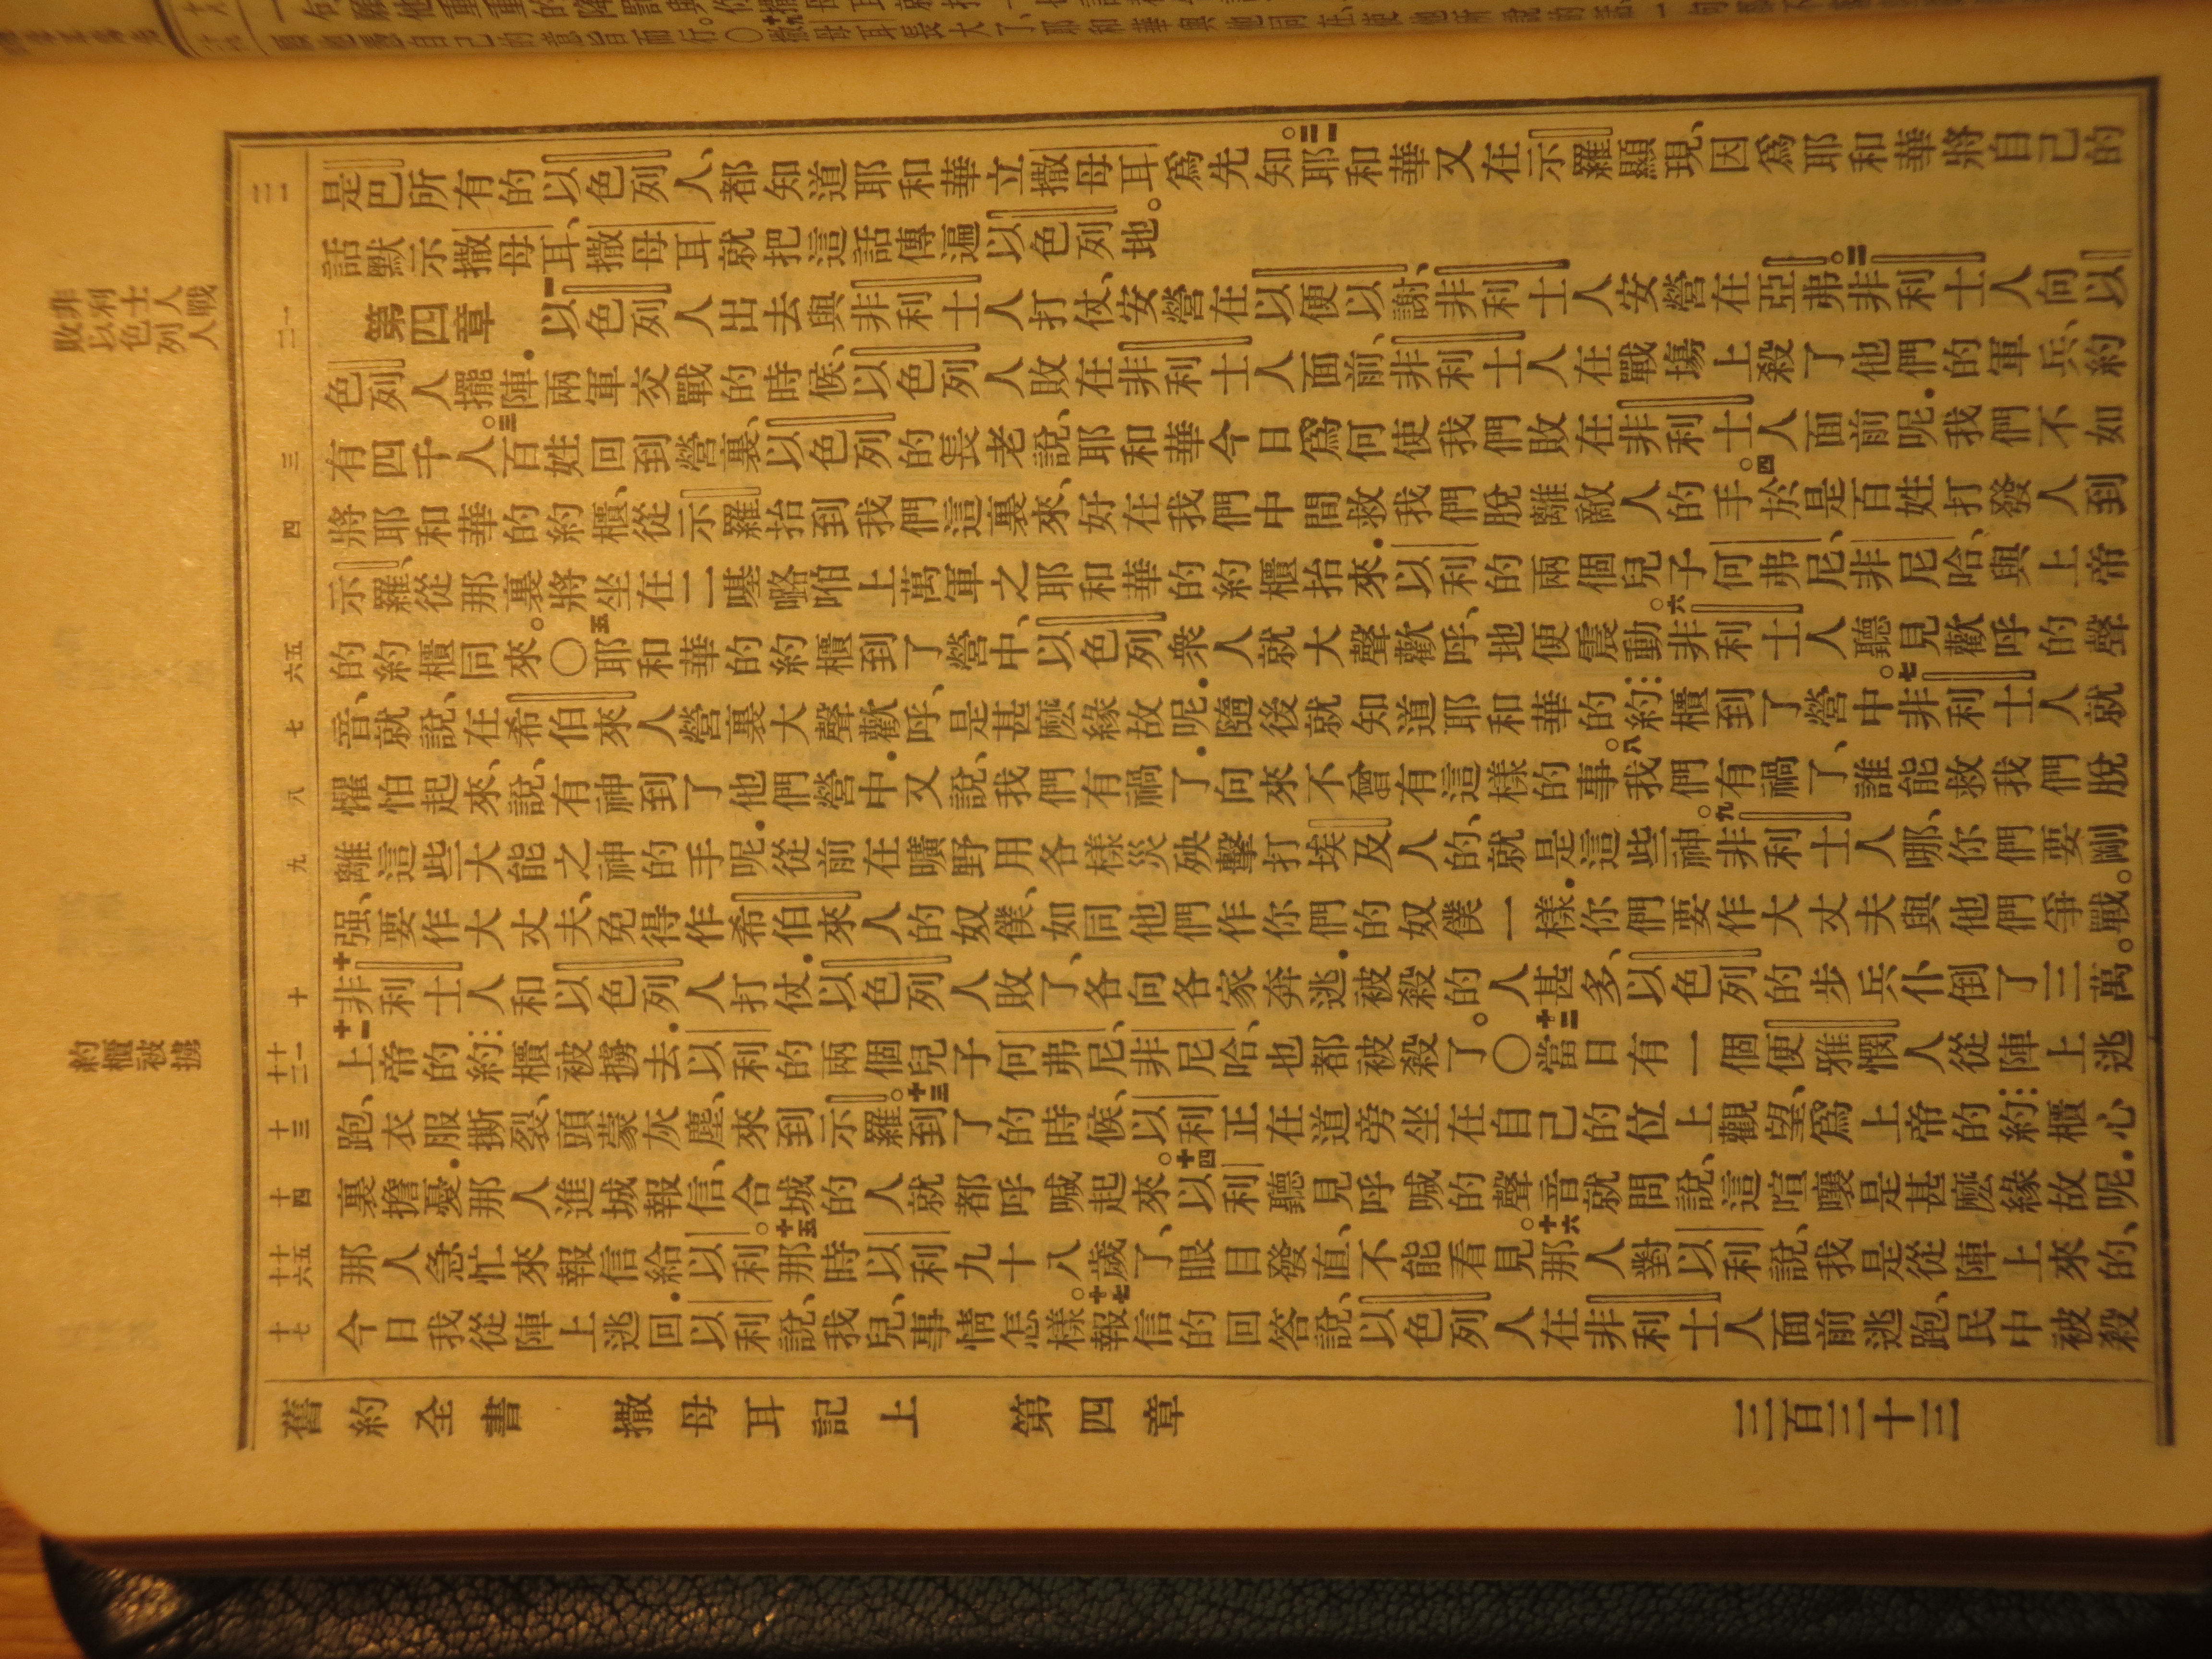 非利士人戰
敗以色列人
約櫃被擄
二一
二一
三
四
六五
七
八
九
十
十一
十二
十三
十四
十五
十六
十七
是巴所有的以色列人、都知道耶和華立撒母耳爲先知。二一耶和華又在示羅顯現、因爲耶和華將自己的
話默示撒母耳、撒母耳就把這話傳遍以色列地。
第四章 一以色列人出去與非利士人打仗、安營在以便以謝、非利士人安營在亞弗。二非利士人向以
色列人擺陣．兩軍交戰的時候、以色列人敗在非利士人面前、非利士人在戰塲上殺了他們的軍兵、約
有四千人。三百姓回到營裏、以色列的長老說、耶和華今日爲何使我們敗在非利士人面前呢．我們不如
將耶和華的約櫃、從示羅抬到我們這裏來、好在我們中間救我們脫離敵人的手。四於是百姓打發人到
示羅、從那裏將坐在二𠼻嚧咱上萬軍之耶和華的約櫃抬來．以利的兩個兒子何弗尼、非尼哈、與上帝
的約櫃同來。○五耶和華的約櫃到了營中、以色列衆人就大聲歡呼、地便震動。六非利士人聽見歡呼的聲
音、就說、在希伯來人營裏大聲歡呼、是甚麽緣故呢．隨後就知道耶和華的約櫃到了營中。七非利士人就
懼怕起來、說、有神到了他們營中．又說、我們有禍了．向來不曾有這樣的事。八我們有禍了、誰能救我們脫
離這些大能之神的手呢．從前在曠野用各樣災殃擊打埃及人的、就是這些神。九非利士人哪、你們要剛
强、要作大丈夫、免得作希伯來人的奴僕、如同他們作你們的奴僕一樣．你們要作大丈夫與他們爭戰。
十非利士人和以色列人打仗．以色列人敗了、各向各家奔逃．被殺的人甚多、以色列的步兵仆倒了三萬。
十一上帝的約櫃被擄去．以利的兩個兒子何弗尼、非尼哈、也都被殺了。○十二當日有一個便雅憫人從陣上逃
跑、衣服撕裂、頭蒙灰塵、來到示羅。十三到了的時候、以利正在道旁坐在自己的位上觀望、爲上帝的約櫃心
裏擔憂．那人進城報信、合城的人就都呼喊起來。十四以利聽見呼喊的聲音就問說、這喧嚷是甚麽緣故呢．
那人急忙來報信給以利。十五那時以利九十八歲了、眼目發直、不能看見。十六那人對以利說、我是從陣上來的、
今日我從陣上逃回．以利說、我兒、事情怎樣。十七報信的回答說、以色列人在非利士人面前逃跑、民中被殺
舊約全書 撒母耳記上 第四章 三百三十三